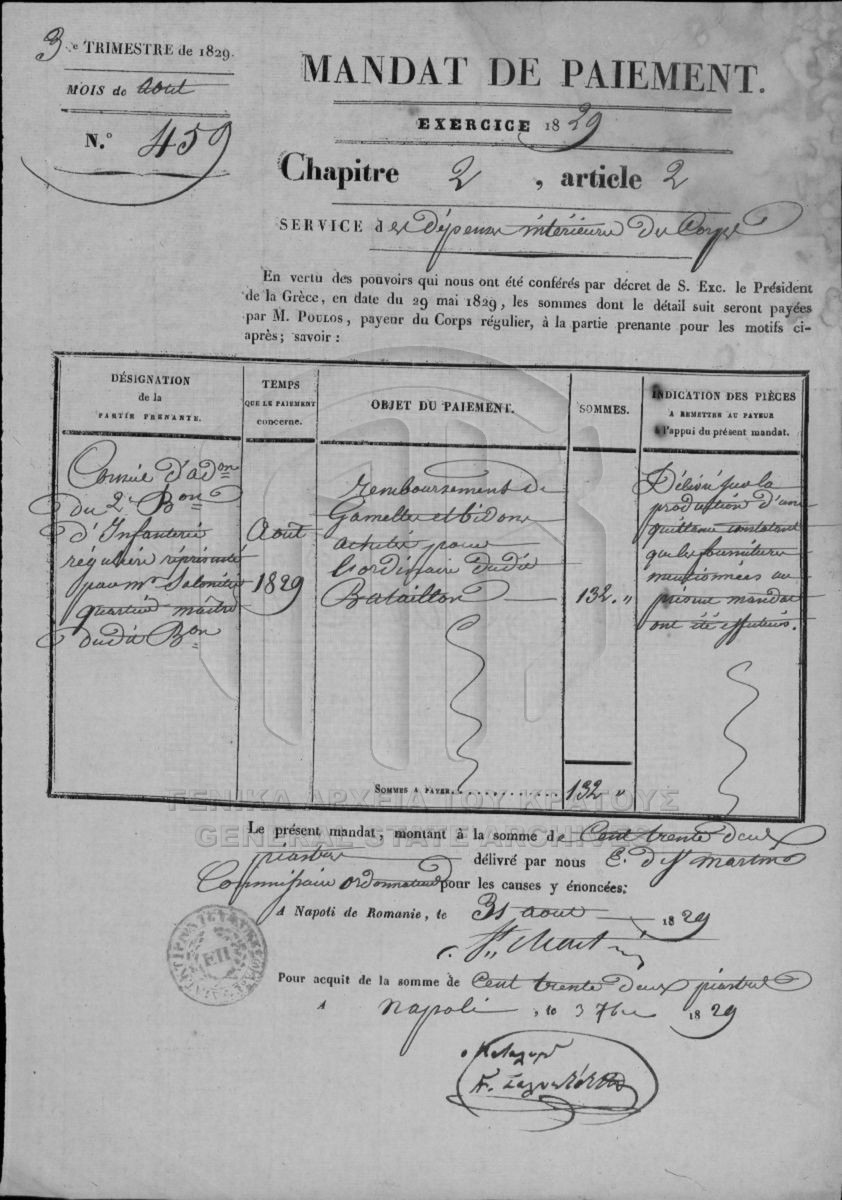 3e TRIMESTRE de 1829.
MOIS de aout
N.° 459
MANDAT DE PAIEMENT.
EXERCICE 1829
Chapitre 2, article 2
SERVICE des dépenses intérieures du Corps
En vertu des pouvoirs qui nous ont été conférés par décret de S. Exc. le Président
de la Grèce, en date du 29 mai 1829, les sommes dont le détail suit seront payées
par M. POULOS, payeur du Corps régulier, à la partie prenante pour les motifs ci-
après; savoir :
DÉSIGNATION
de la
PARTIE PRENANTE.
TEMPS
QUE LE PAIEMENT
concerne.
OBJET DU PAIEMENT.
SOMMES.
INDICATION DES PIÈCES
A REMETTRE AU PAYEUR
à l'appui du présent mandat.
Conseil d'adon
du 2e Bon
d'Infanterie
régulière représenté
par mr
quartier maître
dudit Bon
Aout
1829
remboursement de
Gamelles et bidons
achetés pour
l'ordinaire dudit
Bataillon
132 "
Délivré sur la
production d'une
quittance constatant
que les fournitures
mentionnées au
présent mandat
ont été effectuées.
SOMMES A PAYER. 132 "
ΓΕΝΙΚΑ ΑΡΧΕΙΑ ΤΟΥ ΚΡΑΤΟΥΣ
GENERAL STATE ARCHIVES
Le présent mandat, montant à la somme de Cent trente deux
piastres délivré par nous C. de St martin
Commissaire ordonnateur pour les causes y énoncées;
A Napoli de Romanie, le 31 aout 1829
St Martin
Pour acquit de la somme de Cent trente deux piastres
A Napoli, le 3 7bre 1829